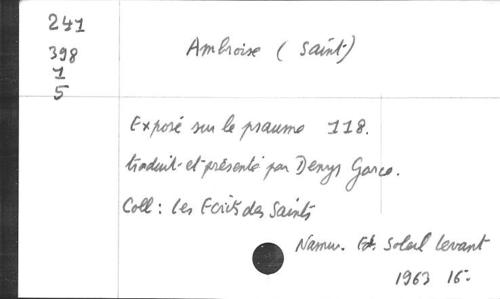 241
398
1
5
Ambroise (Saint)
Exposé sur le psaume 118.
traduit et présenté par Denys Gorce.
Coll : Les Ecrits des Saints
Namur. Ed. Soleil levant
1963 16-